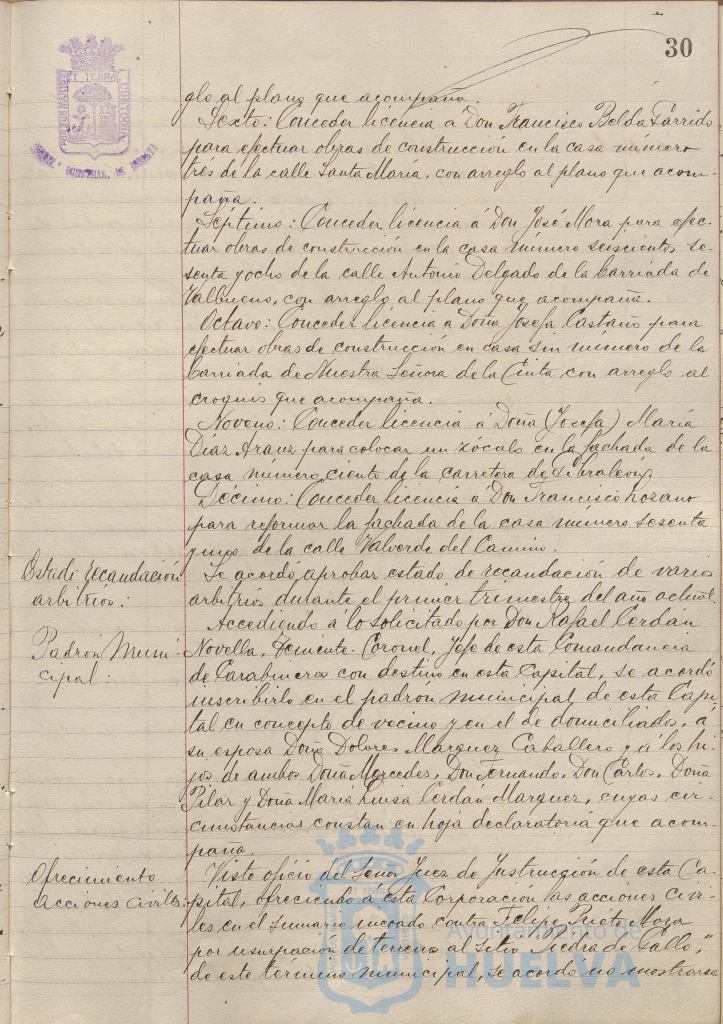 30
glo al plano que acompaña.
Sexto: Conceder licencia a Don Francisco Belda Garrido
para efectuar obras de construccion en la casa número
trés de la calle Santa María, con arreglo al plano que acom-
paña.
Séptimo: Conceder licencia á Don José Mora para efec-
tuar obras de construcción en la casa número seiscientos se-
senta y ocho de la calle Antonio Delgado de la barriada de
Valbueno, con arreglo al plano que acompaña.
Octavo: Conceder licencia a Doña Josefa Castaño para
efectuar obras de construcción en casa sin número de la
barriada de Nuestra Señora de la Cinta con arreglo al
croquis que acompaña.
Noveno: Conceder licencia á Doña (Josefa) María
Díaz Arauz para colocar un zócalo en la fachada de la
casa número ciento de la carretera de Gibraleon,
Décimo: Conceder licencia á Don Francisco Lozano
para reformar la fachada de la casa número sesenta
y uno de la calle Valverde del Camino.
Estado recaudación
arbitrios:
Se acordó aprobar estado de recaudación de varios
arbitrios durante el primer trimestre del año actual.
Padrón Muni-
cipal:
Accediendo á lo solicitado por Don Rafael Cerdán
Novella, Teniente Coronel, Jefe de esta Comandancia
de Carabineros con destino en esta Capital, se acordó
inscribirlo en el padrón municipal de esta Capi-
tal en concepto de vecino y en el de domiciliados, á
su esposa Doña Dolores Marquez Caballero y á los hi-
jos de ambos Doña Mercedes, Don Fernando, Don Carlos, Doña
Pilar y Doña María Luisa Cerdán Marquez, cuyas cir-
cunstancias constan en hoja declaratoria que acom-
paña.
Ofrecimiento
acciones civiles:
Visto oficio del Señor Juez de Instrucción de esta Ca-
pital, ofreciendo a esta Corporación las acciones civi-
les en el sumario incoado contra Felipe Prieto Moya
por usurpación de terreno al sitio "Piedra de Gallo,"
de este término municipal, se acordó no mostrarse
Ayuntamiento de
HUELVA